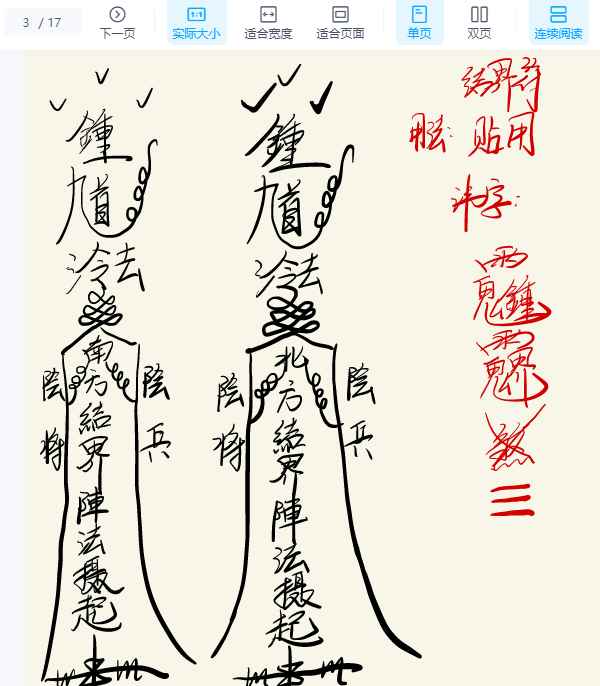 3 / 17
下一页
实际大小
适合宽度
适合页面
单页
双页
连续阅读
鍾馗
法令
南方結界陣法摄起
陰將
陰兵
鍾馗
法令
北方結界陣法摄起
陰將
陰兵
结界符
用法：贴用
讳字：
雨鬼鍾
雨鬼界
煞
三